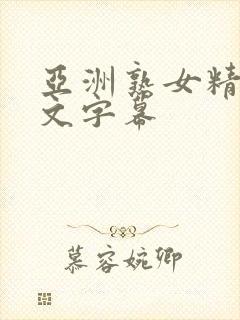 亞洲熟女精
文字幕
慕容婉卿